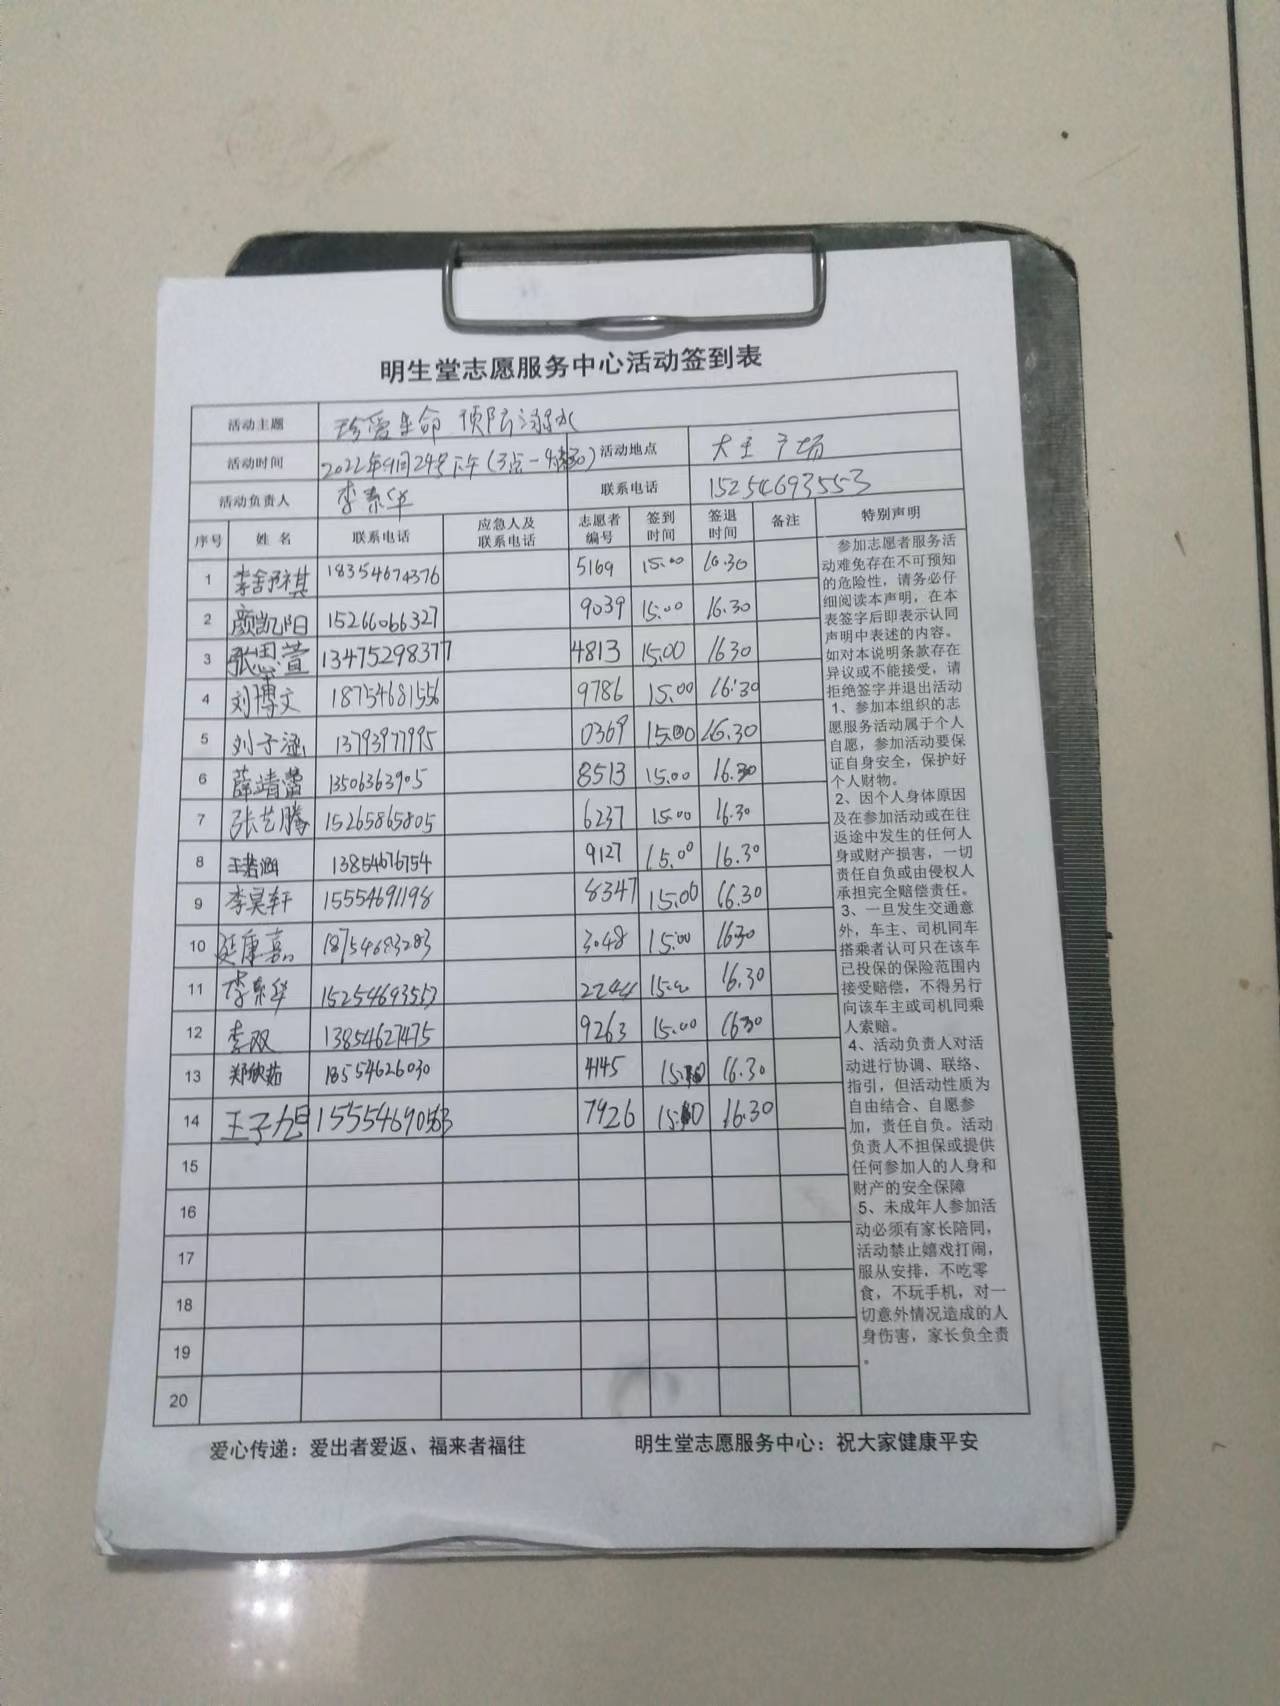 明生堂志愿服务中心活动签到表
活动主题 珍爱生命 预防溺水
活动时间 2022年9月24号下午(3点-4点30) 活动地点 大王广场
活动负责人 李素华 联系电话 15254693553
序号 姓名 联系电话 应急人及联系电话 志愿者编号 签到时间 签退时间 备注 特别声明
1 18354674376 5169 15.00 16.30
2 颜凯阳 15266066327 9039 15.00 16.30
3 张思萱 13475298377 4813 15.00 1630
4 刘博文 18754681556 9786 15.00 16:30
5 刘子涵 13793977995 0369 15.00 16.30
6 薛靖蕾 13506363905 8513 15.00 16.30
7 张艺腾 15265865805 6237 15.00 16.30
8 王若涵 13854676754 9127 15.00 16.30
9 李昊轩 15554691198 8347 15.00 16.30
10 延康嘉 18754683283 3048 15:00 1630
11 李素华 15254693553 2244 16.30
12 李双 13854627475 9263 15.00 1630
13 郑欣茹 18554626030 4145 16.30
14 王子旭 7926 16.30
15
16
17
18
19
20
参加志愿者服务活
动难免存在不可预知
的危险性，请务必仔
细阅读本声明，在本
表签字后即表示认同
声明中表述的内容。
如对本说明条款存在
异议或不能接受，请
拒绝签字并退出活动
1、参加本组织的志
愿服务活动属于个人
自愿，参加活动要保
证自身安全，保护好
个人财物。
2、因个人身体原因
及在参加活动或在往
返途中发生的任何人
身或财产损害，一切
责任自负或由侵权人
承担完全赔偿责任。
3、一旦发生交通意
外，车主、司机同车
搭乘者认可只在该车
已投保的保险范围内
接受赔偿，不得另行
向该车主或司机同乘
人索赔。
4、活动负责人对活
动进行协调、联络、
指引，但活动性质为
自由结合、自愿参
加，责任自负。活动
负责人不担保或提供
任何参加人的人身和
财产的安全保障
5、未成年人参加活
动必须有家长陪同，
活动禁止嬉戏打闹，
服从安排，不吃零
食，不玩手机，对一
切意外情况造成的人
身伤害，家长负全责
。
爱心传递：爱出者爱返、福来者福往 明生堂志愿服务中心：祝大家健康平安